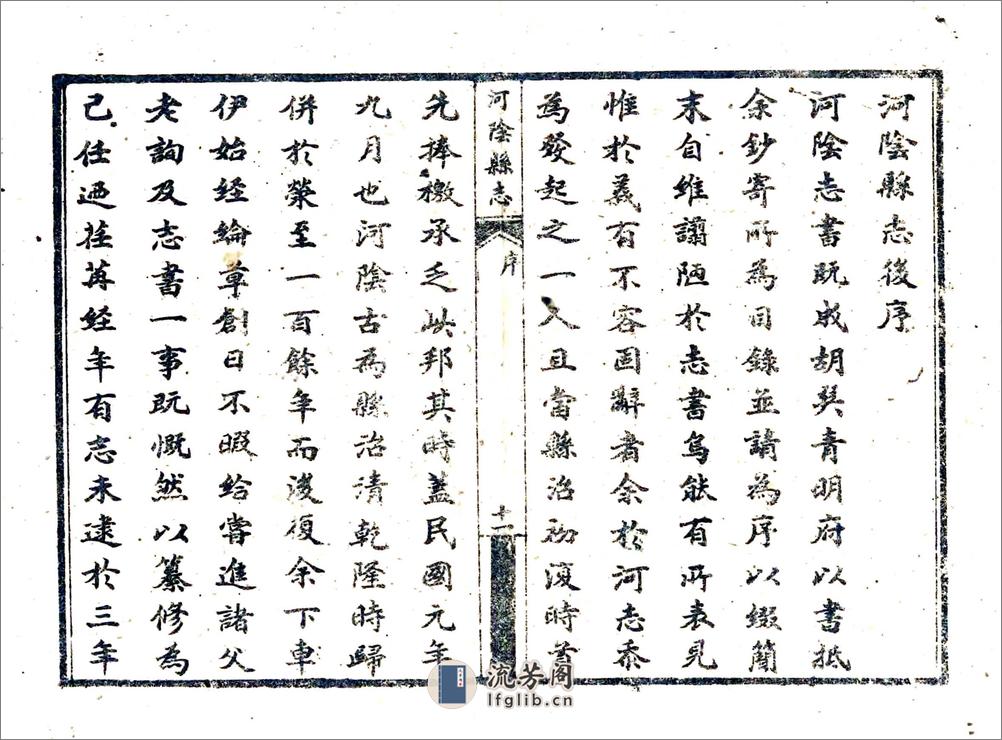 河陰縣志後序
河陰志書既成胡癸青明府以書抵
余鈔寄所為目錄並請為序以綴簡
末自維譾陋於志書烏能有所表見
惟於義有不容固辭者余於河志忝
為發起之一人且當縣治初復時首
河陰縣志
序
十一
先捧檄承乏此邦其時蓋民國元年
九月也河陰古為縣治清乾隆時歸
併於滎至一百餘年而後復余下車
伊始經綸草創日不暇給嘗進諸父
老詢及志書一事既慨然以纂修為
己任迺荏苒經年有志未逮於三年
流芳阁
lfglib.cn